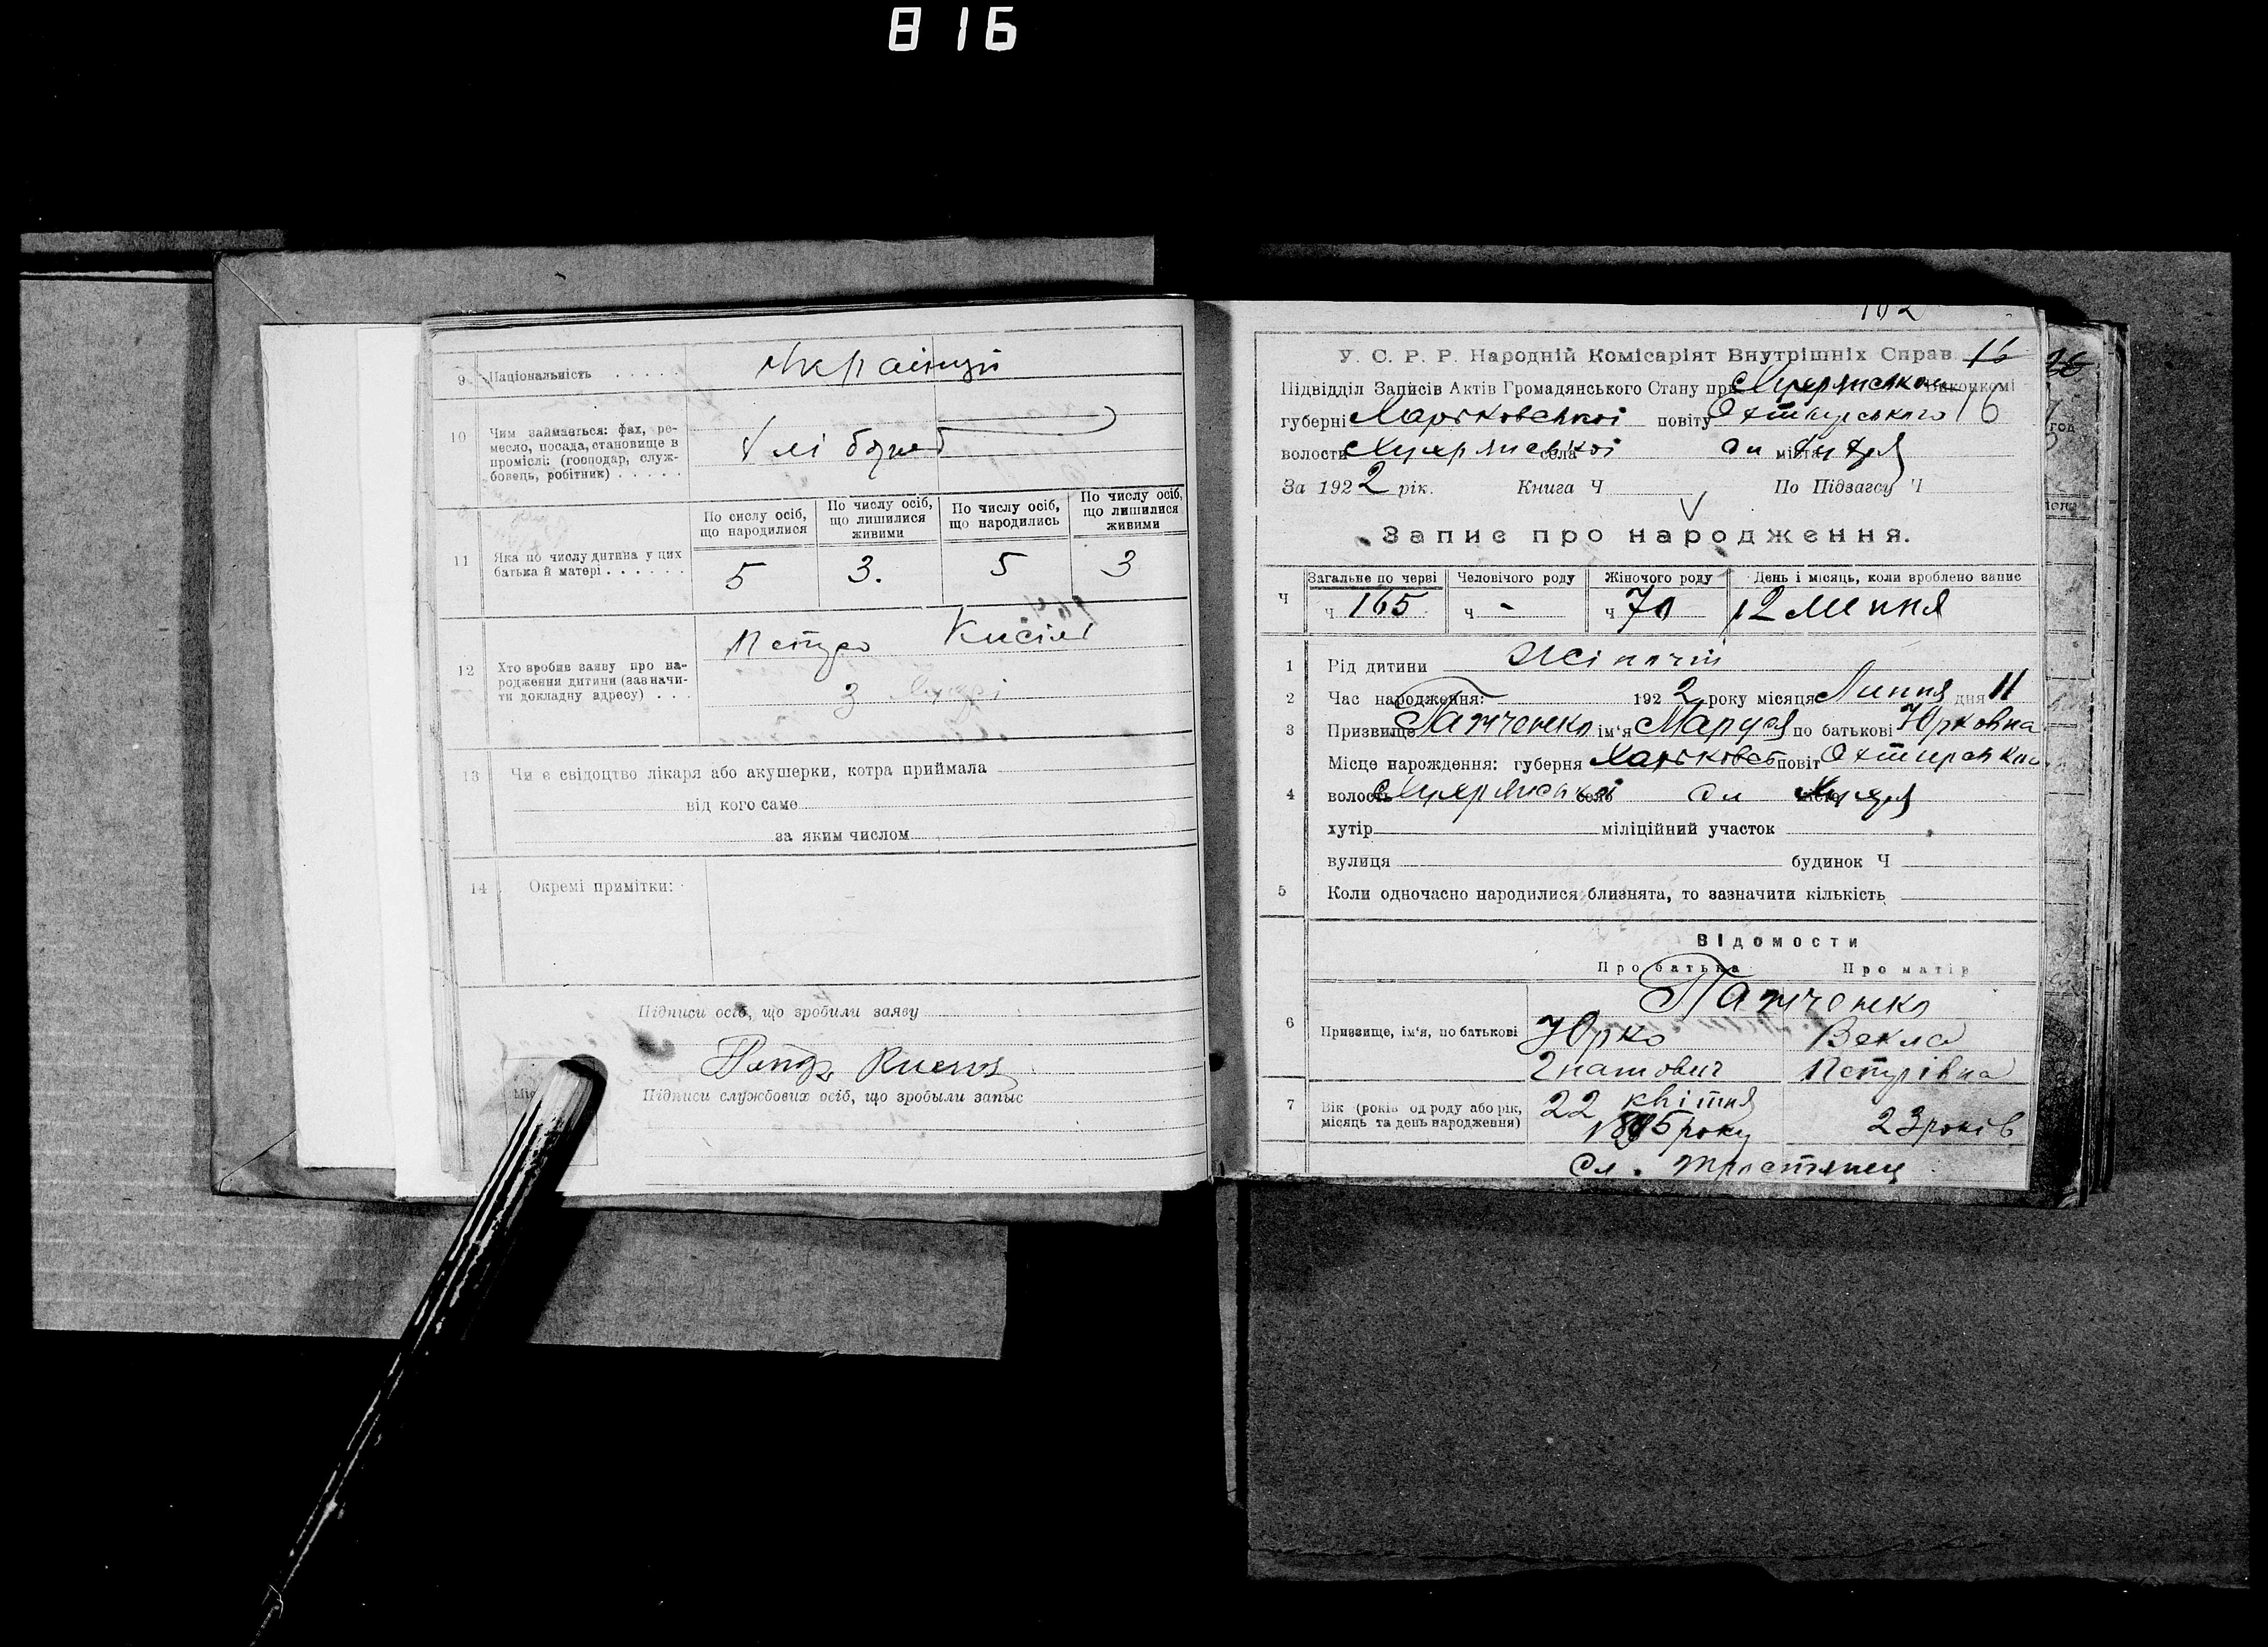 816
9 Національність . . . . . Українці
10 Чим займається: фах, ре-
месло, посада, становище в
проміслі: (господар, служ-
бовець, робітник) . . . . .
Хлібороб
По числу осіб, що народилися
По числу осіб, що лишилися живими
По числу осіб, що народились
По числу осіб, що лишилися живими
11 Яка по числу дитина у цих
батька й матері . . . . . .
5 3. 5 3
12 Хто вробив заяву про на-
родження дитини (зазначи-
ти докладну адресу) . . .
Петро Кисіль
з
13 Чи є свідоцтво лікаря або акушерки, котра приймала
від кого саме
за яким числом
14 Окремі примітки:
Підписи осіб, що зробили заяву
Підписи службових осіб, що зробыли запыс
Міс
102
У. С. Р. Р. Народній Комісаріят Внутрішніх Справ. 16
Підвідділ Записів Актів Громадянського Стану при Виконкомі
губерні Харьковської повіту Охтирського 16
волости села сл міста
За 1922 рік. Книга Ч По Підзагсу Ч
Запис про народження.
Загальне по черві Человічого роду Жіночого роду День і місяць, коли вроблено запис
Ч ч 165 ч - ч 70 12 Липня
1 Рід дитини Жіночий
2 Час народження: 1922 року місяця Липня дня 11
3 Призвище ім'я Маруся по батькові Юрковна
Місце нарождення: губерня Харьковсь повіт Охтирськи
4 волость село сл місто
хутір міліційний участок
вулиця будинок Ч
5 Коли одночасно народилися близнята, то зазначити кількість
Відомости
Про батька Про матір
6 Призвище, ім'я, по батькові
Юрко Векла
Гнатович Петрівна
7 Вік (років од роду або рік,
місяць та день народження)
22 квітня
1895 року 23 років
Сл. Тростянец